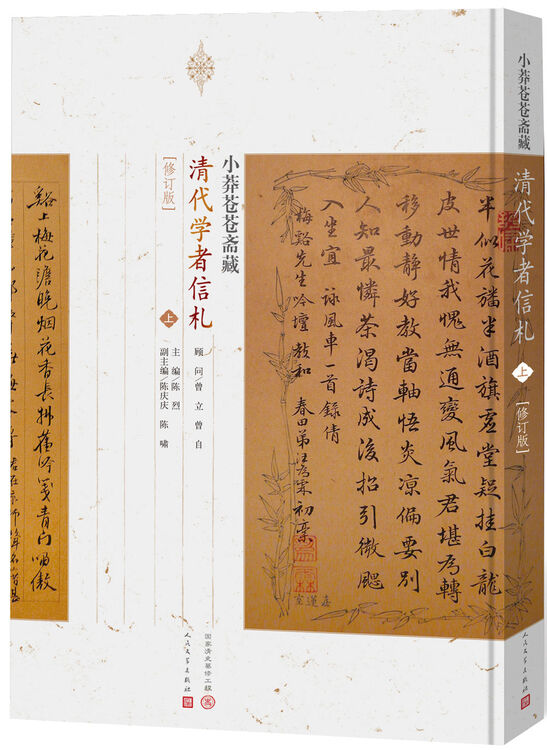 小莽苍苍斋藏
清代学者信札
[修订版]
上
顾 问/曾 立 曾 自
主 编/陈 烈
副主编/陈庆庆 陈 啸
国家清史纂修工程
人民文学出版社
半似花旛半酒旗虚堂疑挂白龙
皮世情我愧無通變風氣君堪為轉
移動静好教當軸悟炎凉偏要别
人知最憐茶渴詩成後招引微颸
入坐宜 詠風車一首錄倩
梅谿先生冷壇教和 春田弟汪為霖初稾
谿上梅花澹晚烟花香長拂舊吟箋青山嘯傲
小莽苍苍斋藏
清代学者信札
上
[修订版]
人民文学出版社